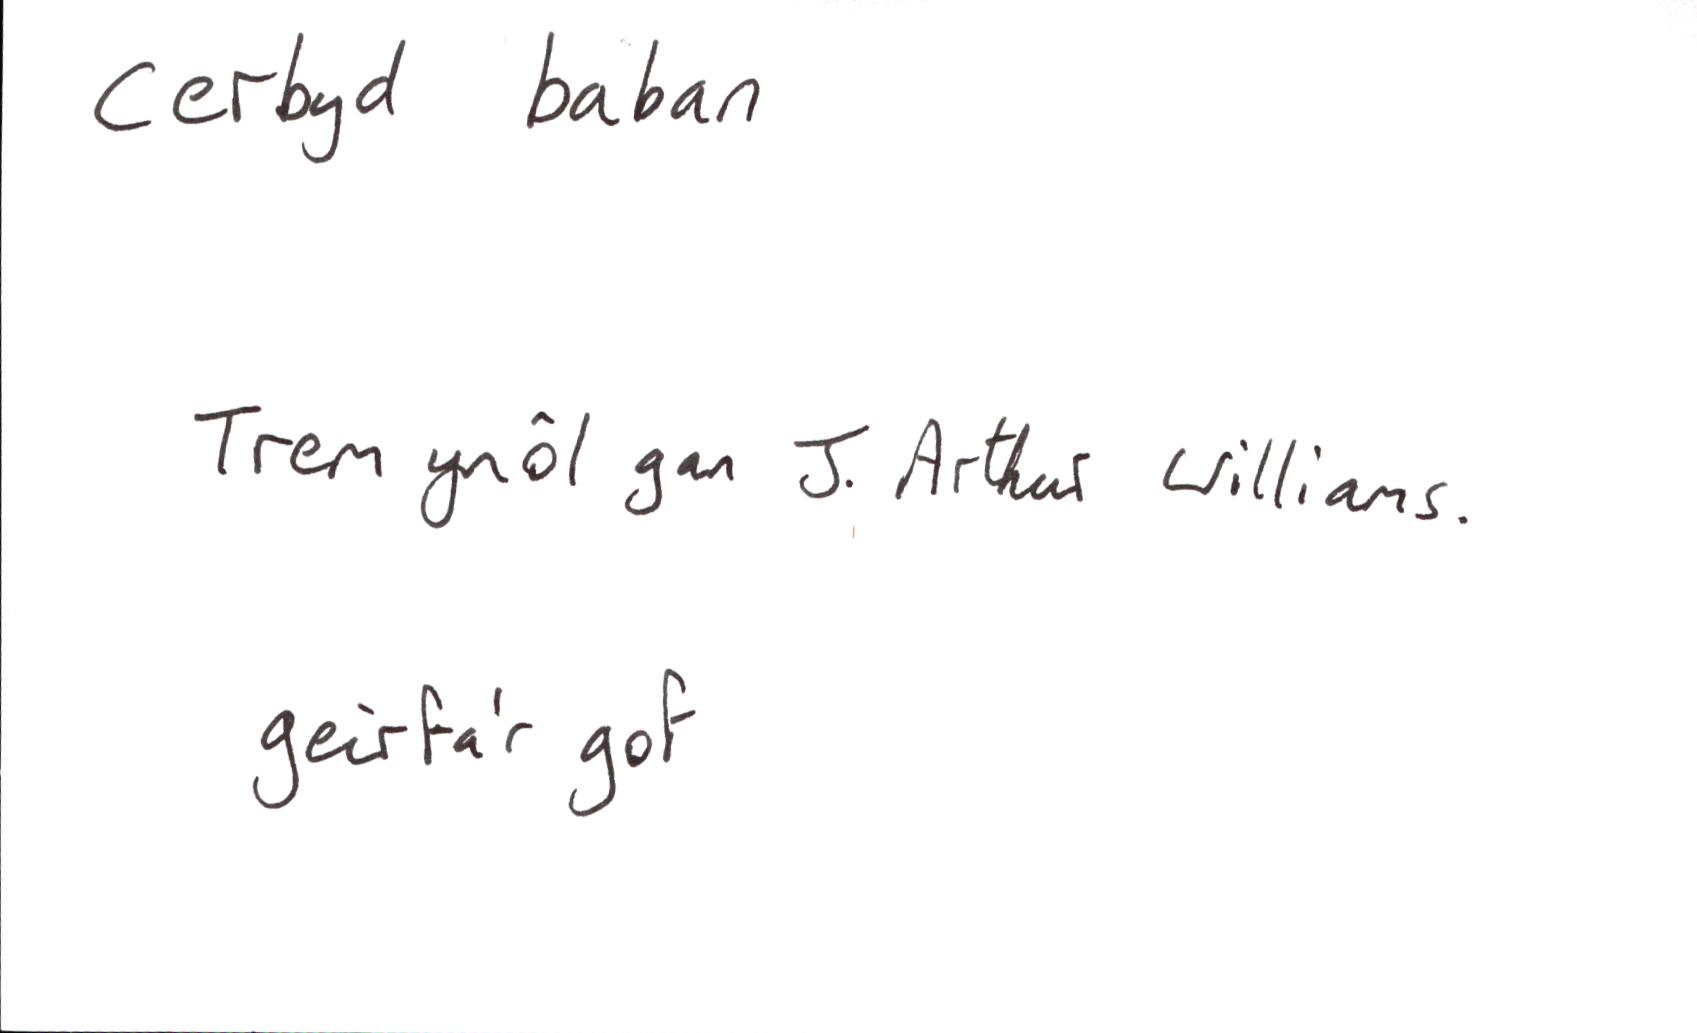 cerbyd baban
Trem ynôl gan J. Arthur Williams.
geirfa'r gof